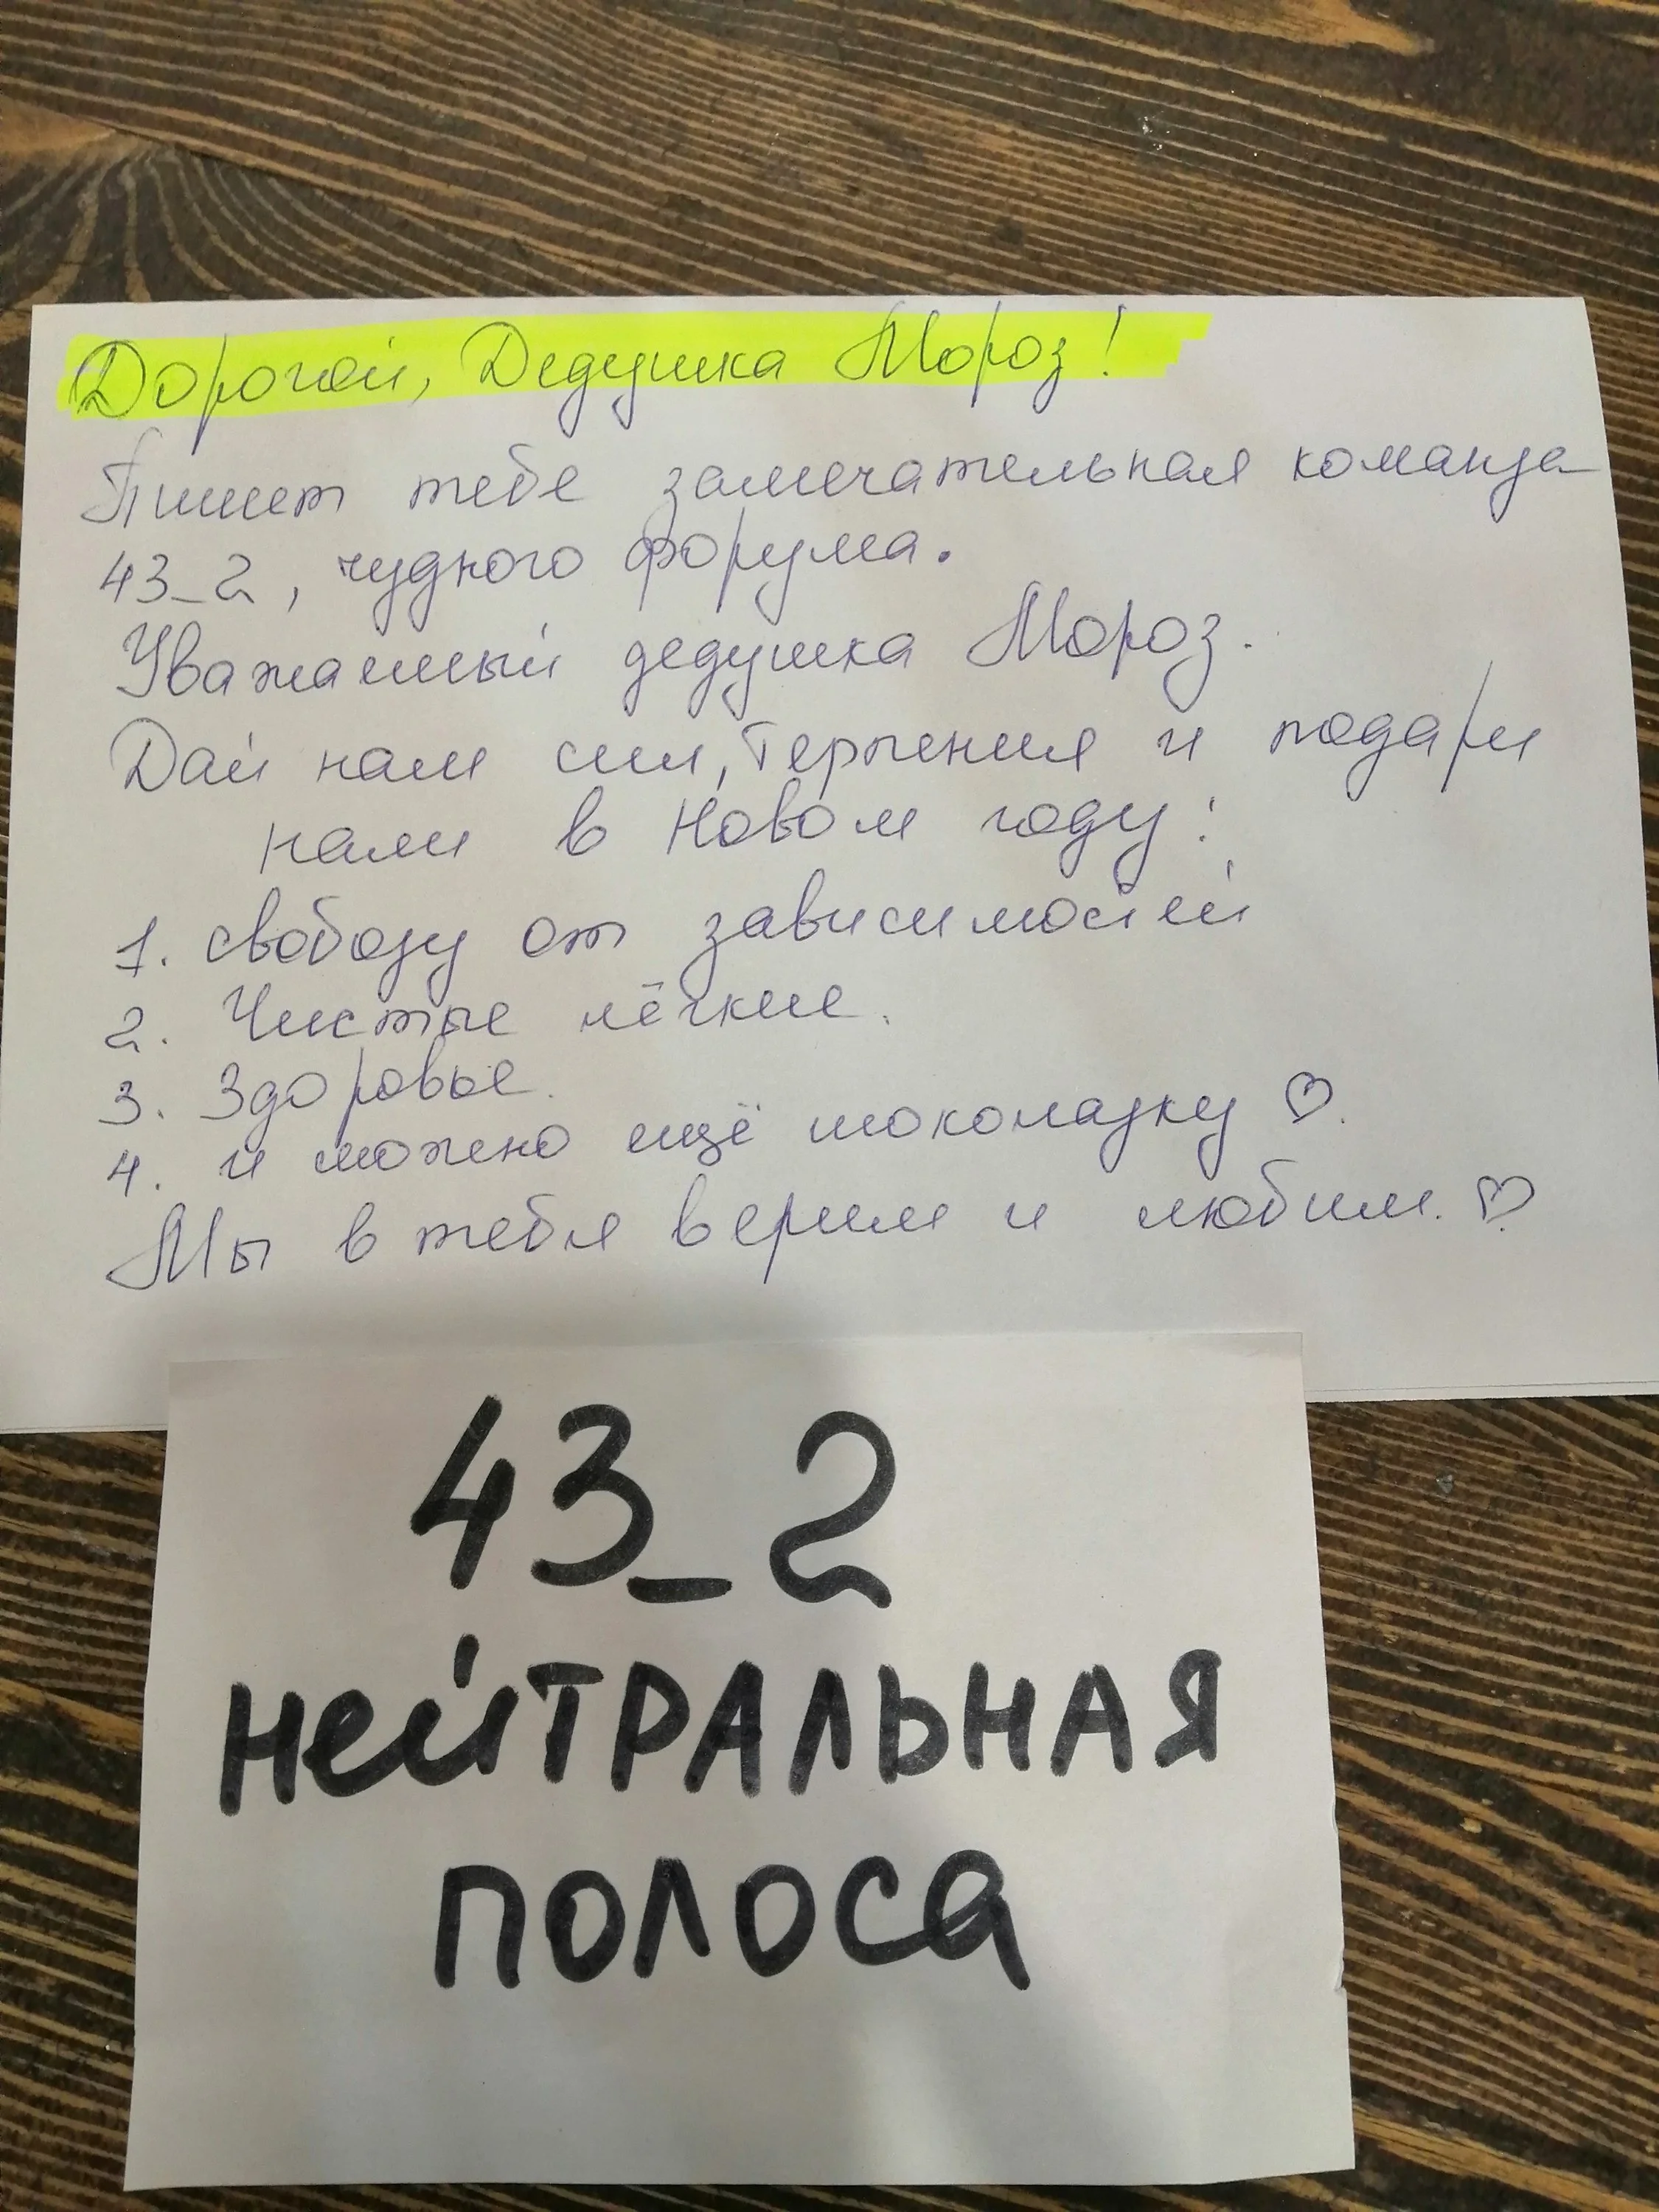 Дорогой, Дедушка Мороз!
Пишет тебе замечательная команда
43_2, чудного форума.
Уважаемый дедушка Мороз.
Дай нам сил, терпения и подари
нам в Новом году:
1. свободу от зависимостей
2. Чистые лёгкие.
3. Здоровье.
4. и можно ещё шоколадку ♡.
Мы в тебя верим и любим. ♡
43_2
НейТРАЛЬНАЯ
ПОЛОСА